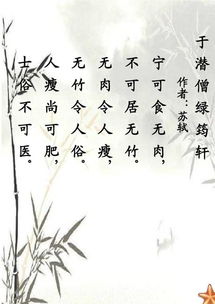 于潜僧绿筠轩
作者：苏轼
宁可食无肉，
不可居无竹。
无肉令人瘦，
无竹令人俗。
人瘦尚可肥，
士俗不可医。